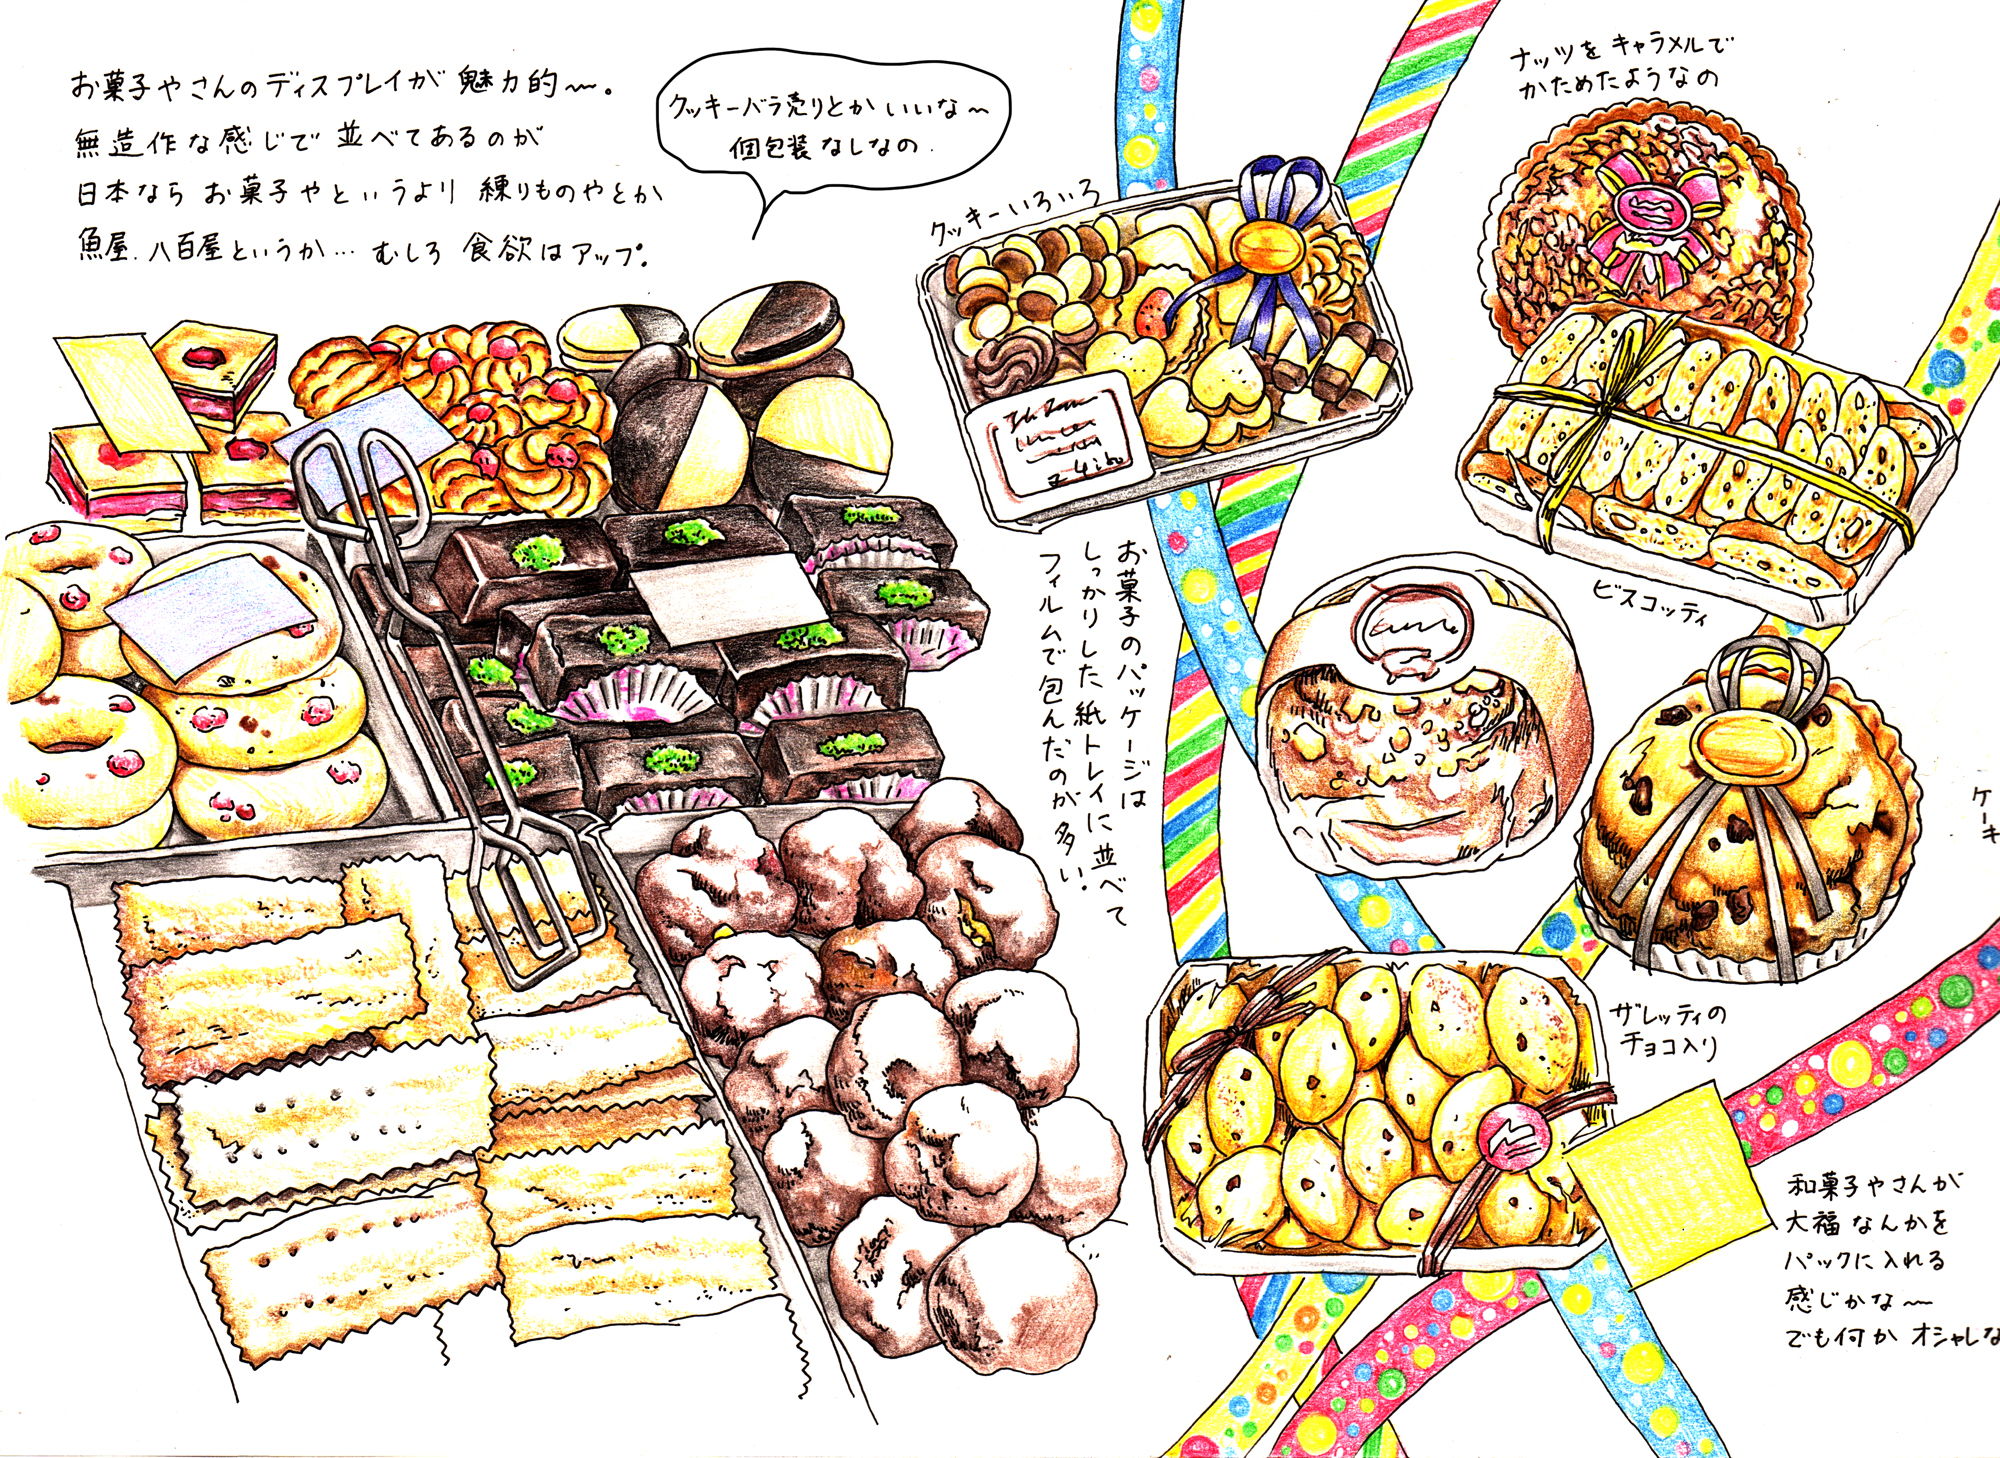 お菓子やさんのディスプレイが魅力的〜。
無造作な感じで並べてあるのが
日本ならお菓子やというより練りものやとか
魚屋、八百屋というか…むしろ食欲はアップ。
クッキーバラ売りとかいいな〜
個包装なしなの.
クッキーいろいろ
ナッツをキャラメルで
かためたようなの
ビスコッティ
お菓子のパッケージは
しっかりした紙トレイに並べて
フィルムで包んだのが多い。
ケーキ
ザレッティの
チョコ入り
和菓子やさんが
大福なんかを
パックに入れる
感じかな〜
でも何かオシャレな